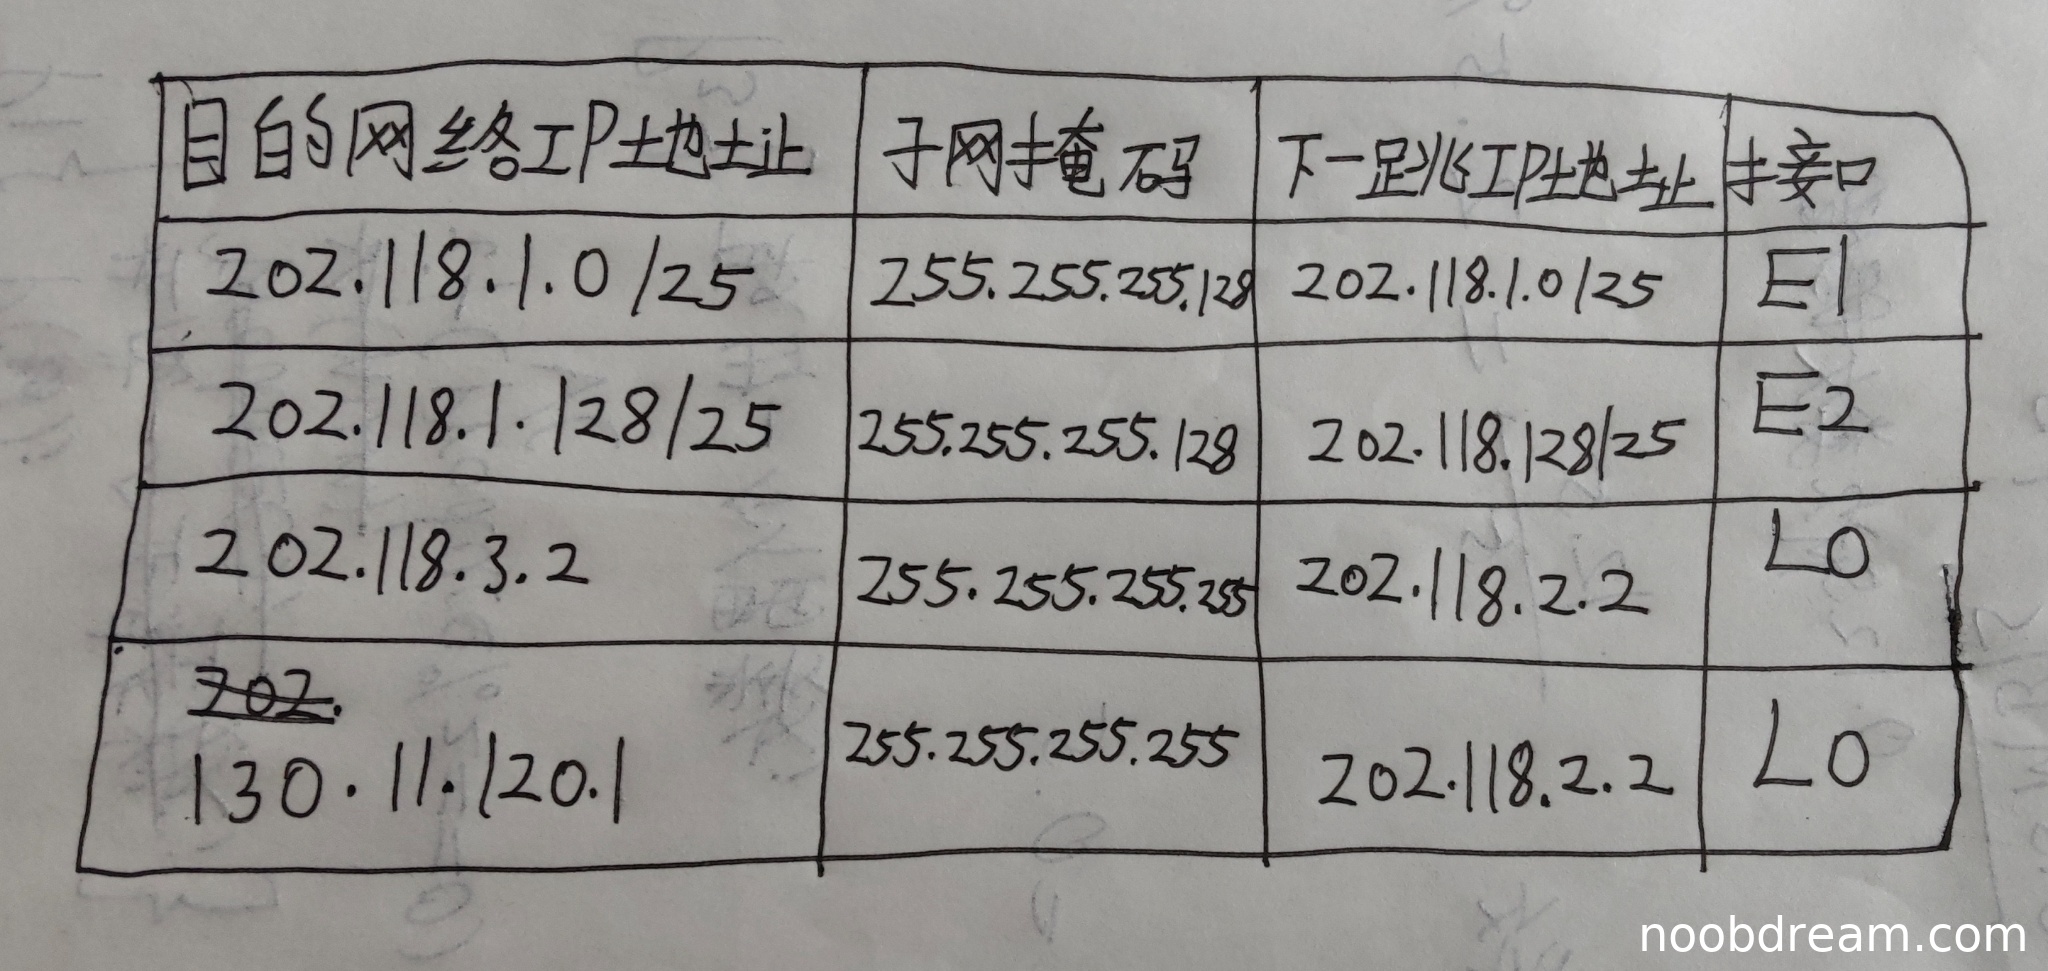 目的网络IP地址 子网掩码 下一跳IP地址 接口
202.118.1.0/25 255.255.255.128 202.118.1.0/25 E1
202.118.1.128/25 255.255.255.128 202.118.128/25 E2
202.118.3.2 255.255.255.255 202.118.2.2 L0
202.
130.11.120.1 255.255.255.255 202.118.2.2 L0
noobdream.com